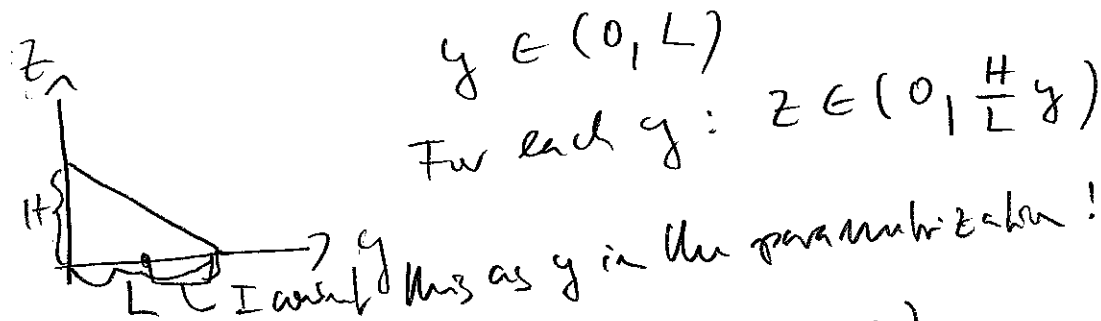 y ∈ (0, L)
For each y: z ∈ (0, H/L y)
z
H
y
L
I want this as y in the parametrization!